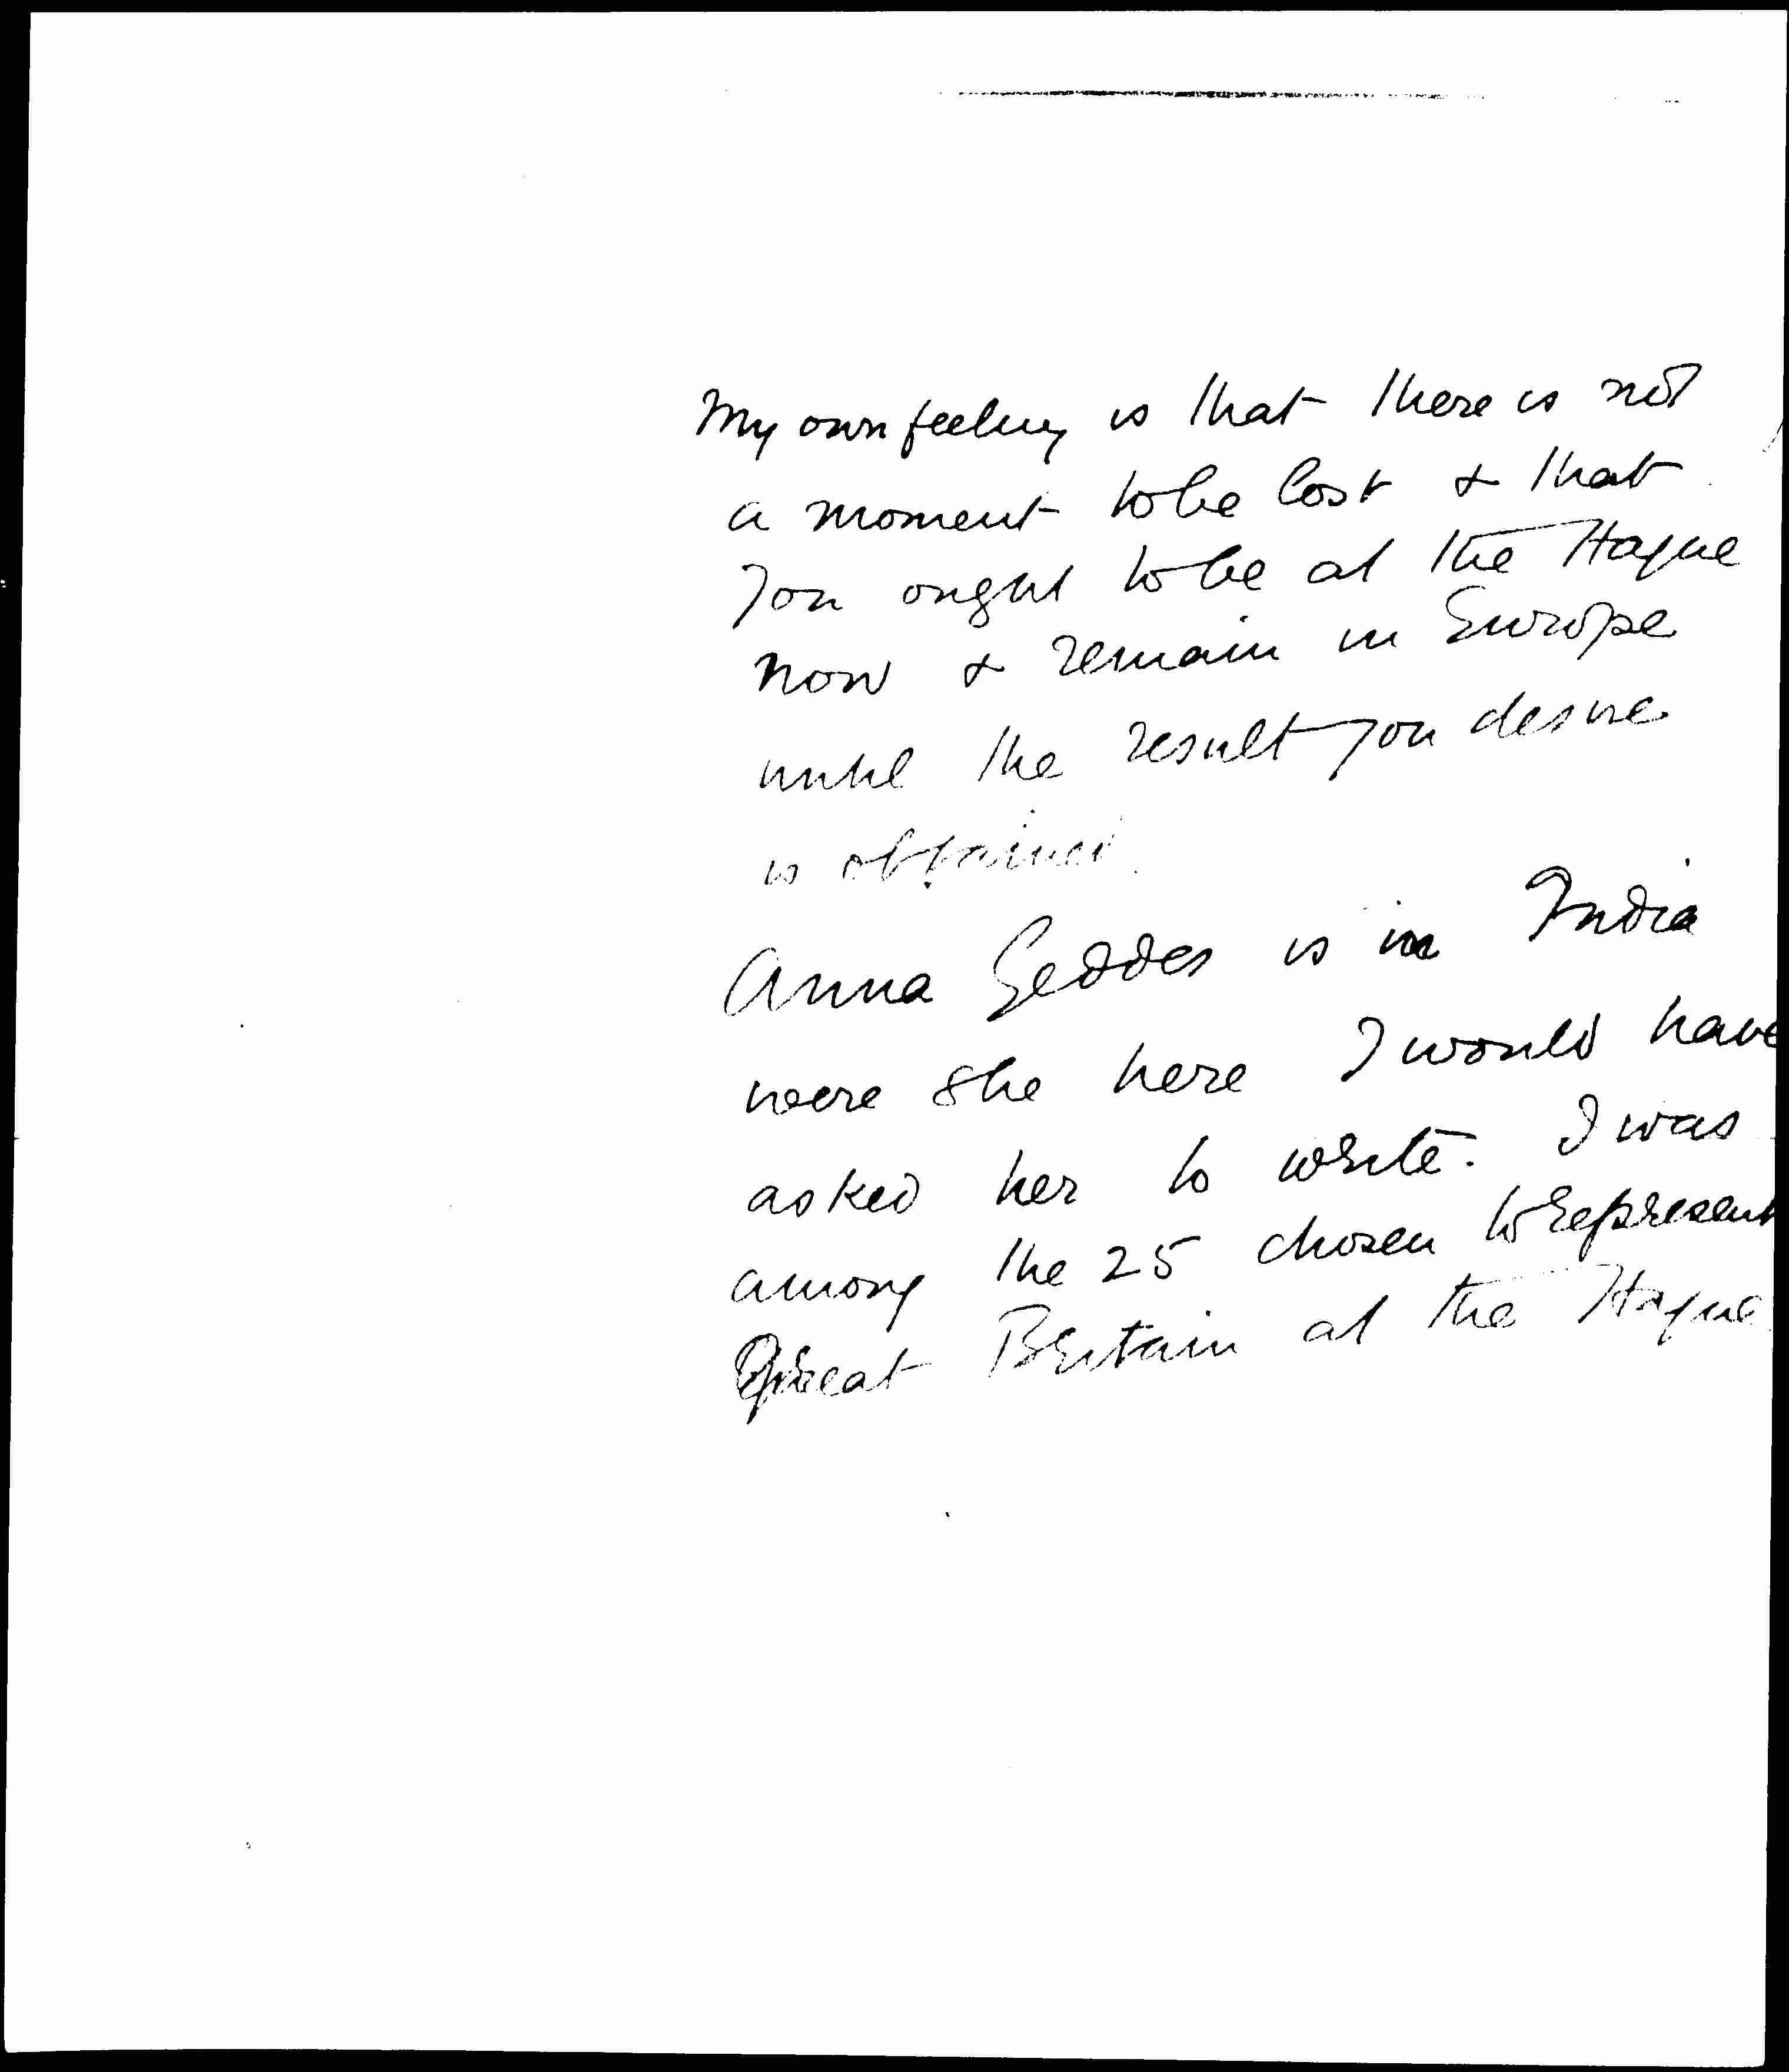 My own feeling is that there is not
a moment to be lost & that
you ought to be at the Hague
now & remain in Europe
until the result you desire
is obtained
Anna Geddes is in India
were she here I would have
asked her to write. I was
among the 25 chosen to represent
Great Britain at the Hague